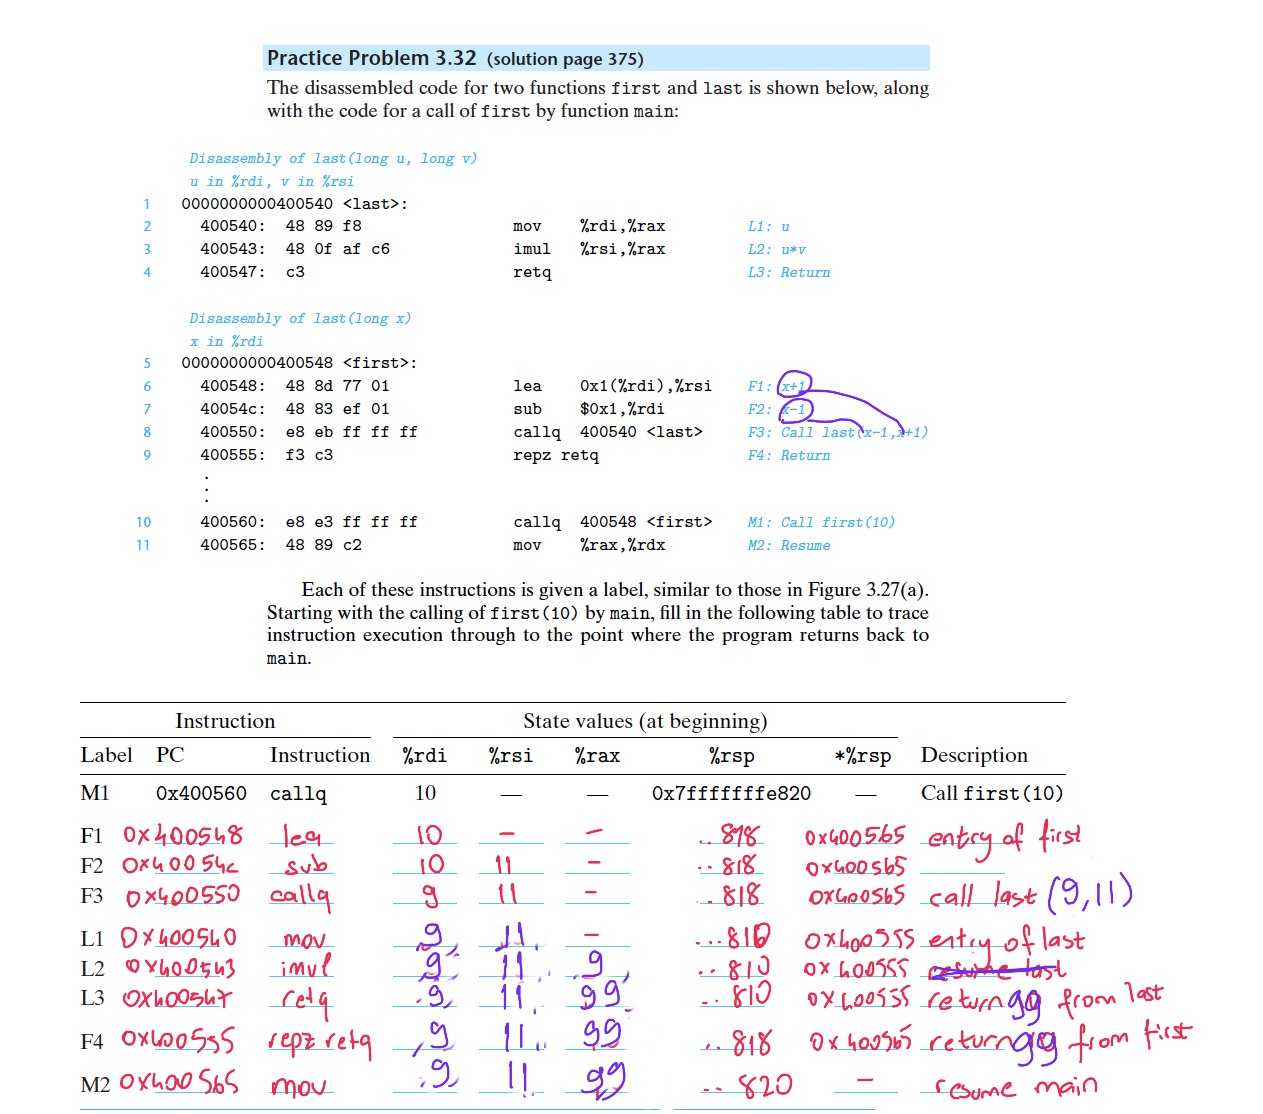 Practice Problem 3.32 (solution page 375)
The disassembled code for two functions first and last is shown below, along
with the code for a call of first by function main:
Disassembly of last(long u, long v)
u in %rdi, v in %rsi
1 0000000000400540 <last>:
2 400540: 48 89 f8 mov %rdi,%rax L1: u
3 400543: 48 0f af c6 imul %rsi,%rax L2: u*v
4 400547: c3 retq L3: Return
Disassembly of last(long x)
x in %rdi
5 0000000000400548 <first>:
6 400548: 48 8d 77 01 lea 0x1(%rdi),%rsi F1: x+1
7 40054c: 48 83 ef 01 sub $0x1,%rdi F2: x-1
8 400550: e8 eb ff ff ff callq 400540 <last> F3: Call last(x-1,x+1)
9 400555: f3 c3 repz retq F4: Return
.
.
.
10 400560: e8 e3 ff ff ff callq 400548 <first> M1: Call first(10)
11 400565: 48 89 c2 mov %rax,%rdx M2: Resume
Each of these instructions is given a label, similar to those in Figure 3.27(a).
Starting with the calling of first(10) by main, fill in the following table to trace
instruction execution through to the point where the program returns back to
main.
Instruction State values (at beginning)
Label PC Instruction %rdi %rsi %rax %rsp *%rsp Description
M1 0x400560 callq 10 — — 0x7fffffffe820 — Call first(10)
F1 0x400548 lea 10 - - ..818 0x400565 entry of first
F2 0x40054c sub 10 11 - ..818 0x400565
F3 0x400550 callq 9 11 - ..818 0x400565 call last (9,11)
L1 0x400540 mov 9 11 - ...810 0x400555 entry of last
L2 0x400543 imul 9 11 9 ..810 0x400555 resume last
L3 0x400547 retq 9 11 99 ..810 0x400555 return 99 from last
F4 0x400555 repz retq 9 11 99 ..818 0x400565 return 99 from first
M2 0x400565 mov 9 11 99 ..820 - resume main